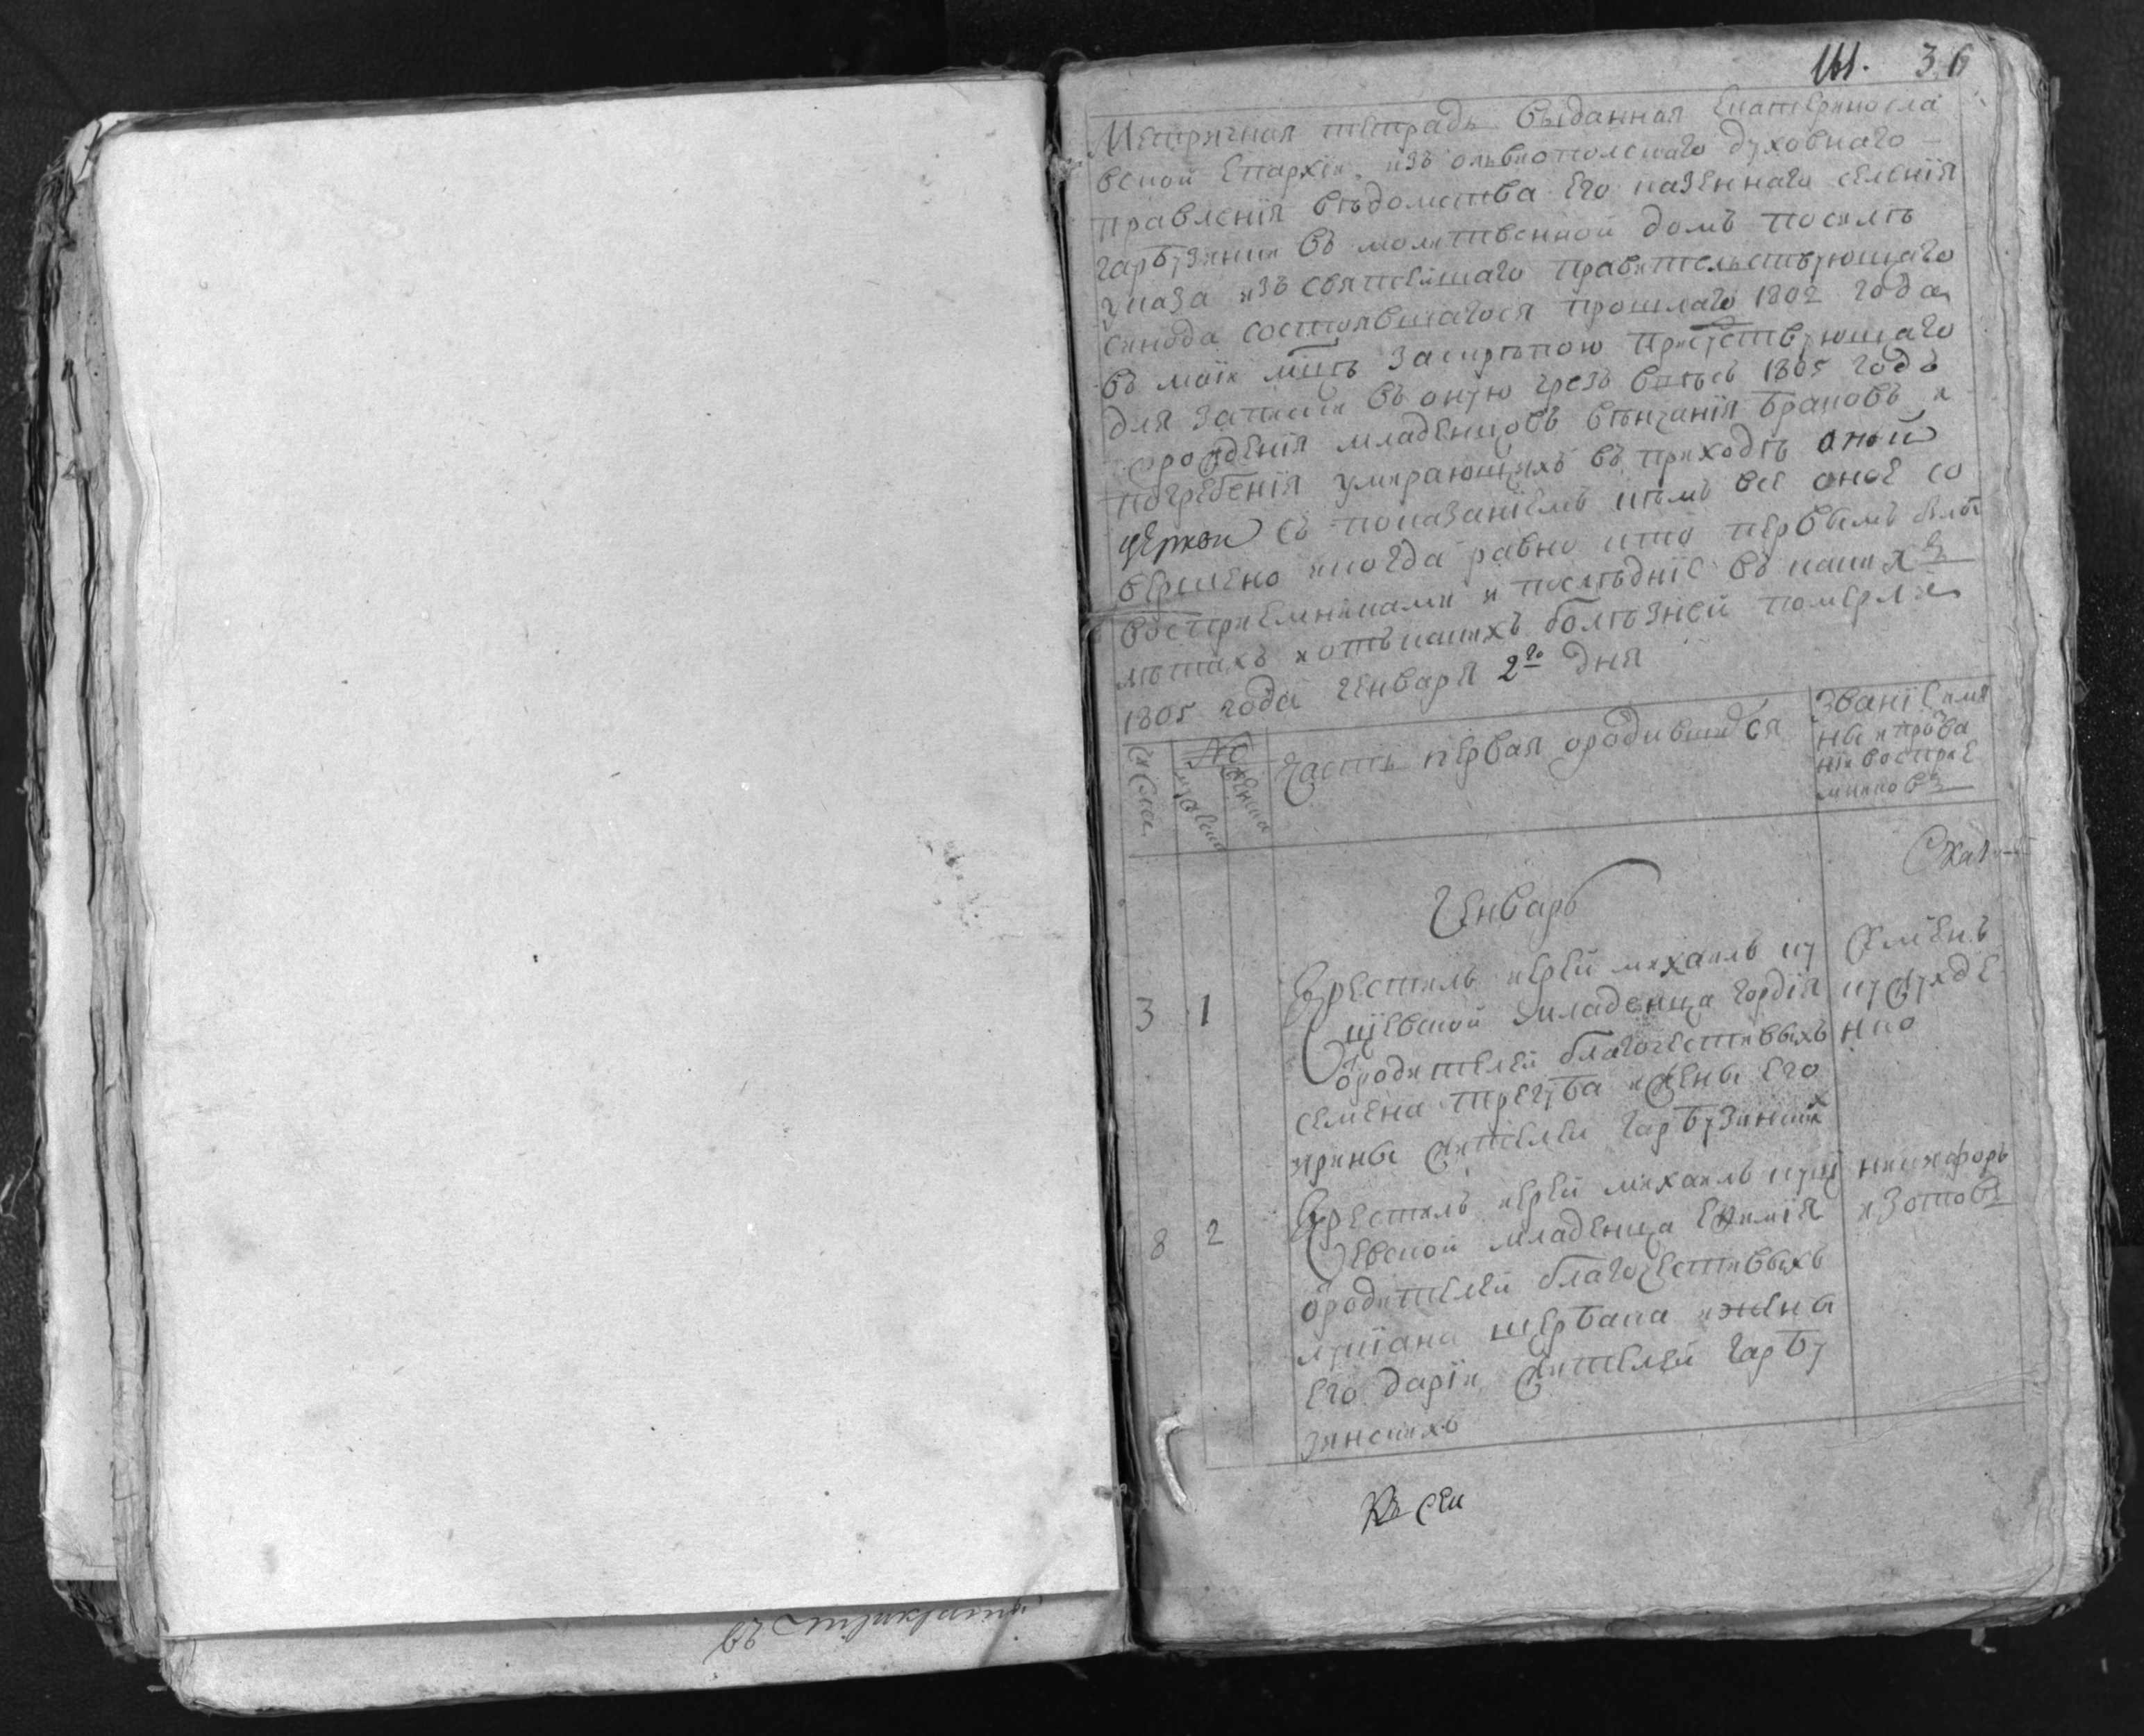 161. 36
Метричная тетрадь выданная Екатериносла
вской Епархіи изъ ольвиопольскаго духовнаго
правленія вѣдомства Его казеннаго селенія
гарбузинки въ молитвенной домъ посилѣ
указа изъ святейшаго правительствующаго
синода состоявшагося прошлаго 1802 года
въ маіи мцѣ заскрѣпою присутствующаго
для записки въ оную чрезъ весь 1805 годъ
орожденія младенцовъ вѣнчанія браковъ и
погребенія умирающихъ въ приходѣ оной
церкви съ показаніемъ кѣмъ все оное со
вершено икогда равно кто первымъ былъ
воспріемниками и послѣдніе въ какихъ
лѣтахъ иоткакихъ болѣзней померли
1805 года Генваря 2го дня
Числа
№
мужеска
женска
Часть первая ородившихся
Званіе имя
ны ипрозва
ніи воспріе
мниковъ
Генварь
3 1
Крестилъ иерей михаилъ ку
цевской младенца гордія
ородителей благочестивыхъ
семена трегуба ижены его
ирины жителей гарбузинскихъ
8 2
Крестилъ иерей михаилъ куц
евской младенца
ородителей благочестивыхъ
лукіана щербака ижены
его даріи жителей гарбу
зинскихъ
никифоръ
изотовъ
Къ сей